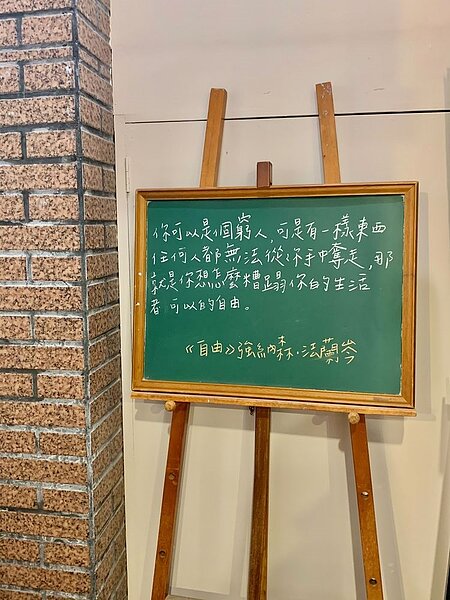 你可以是個窮人,可是有一樣東西
任何人都無法從你手中奪走,那
就是你想怎麼糟蹋你的生活
都可以的自由。
《自由》強納森·法蘭岑